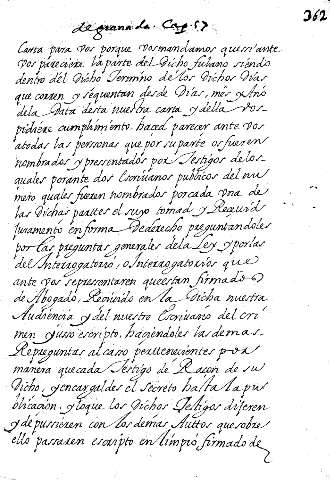 362
de granada. Cap. 57
Carta para vos porque vos mandamos que si ante
vos pareciere la parte del Dicho fulano siendo
dentro del Dicho Termino de los Dichos Dias
que corren y se quentan desde Dias, mes, y Año
dela Data desta nuestra carta y della vos
pidiere cumplimiento haced parecer ante vos
a todas las personas que por su parte os fueren
nombrados y presentados por Testigos de los
quales por ante dos Escrivanos publicos del nu
mero quales fueren nombrados por cada vna de
las dichas partes el suyo tomad y Recivid
Juramento en forma De derecho preguntandoles
por las preguntas generales de la Ley y por las
del Interrogatorio, o Interrogatorios que
ante vos se presentaren que estan firmados
de Abogado, Recivido en la Dicha nuestra
Audiencia y del nuestro Escrivano del cri
men yusso escripto, haciendoles las demas
Repreguntas al caso pertenecientes por
manera que cada Testigo de Racon de su
Dicho, y encargaldes el secreto hasta la pu
blicacion, y lo que los Dichos Testigos dijeren
y depussieren con los demas Auttos que sobre
ello passaren escripto en limpio firmado de